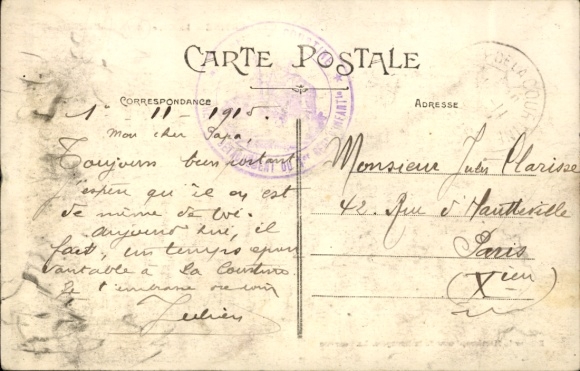 CARTE POSTALE
CORRESPONDANCE
1 - 11 - 1915.
Mon cher Papa,
Toujours bien portant
j'espère qu'il en est
de même de toi.
Aujourd'hui, il
fait un temps épou
vantable à La Courtine
Je t'embrasse
Julien
ADRESSE
Monsieur Jules Clarisse
42. Rue d'Hauteville
Paris
(Xème)
DE LA COUR